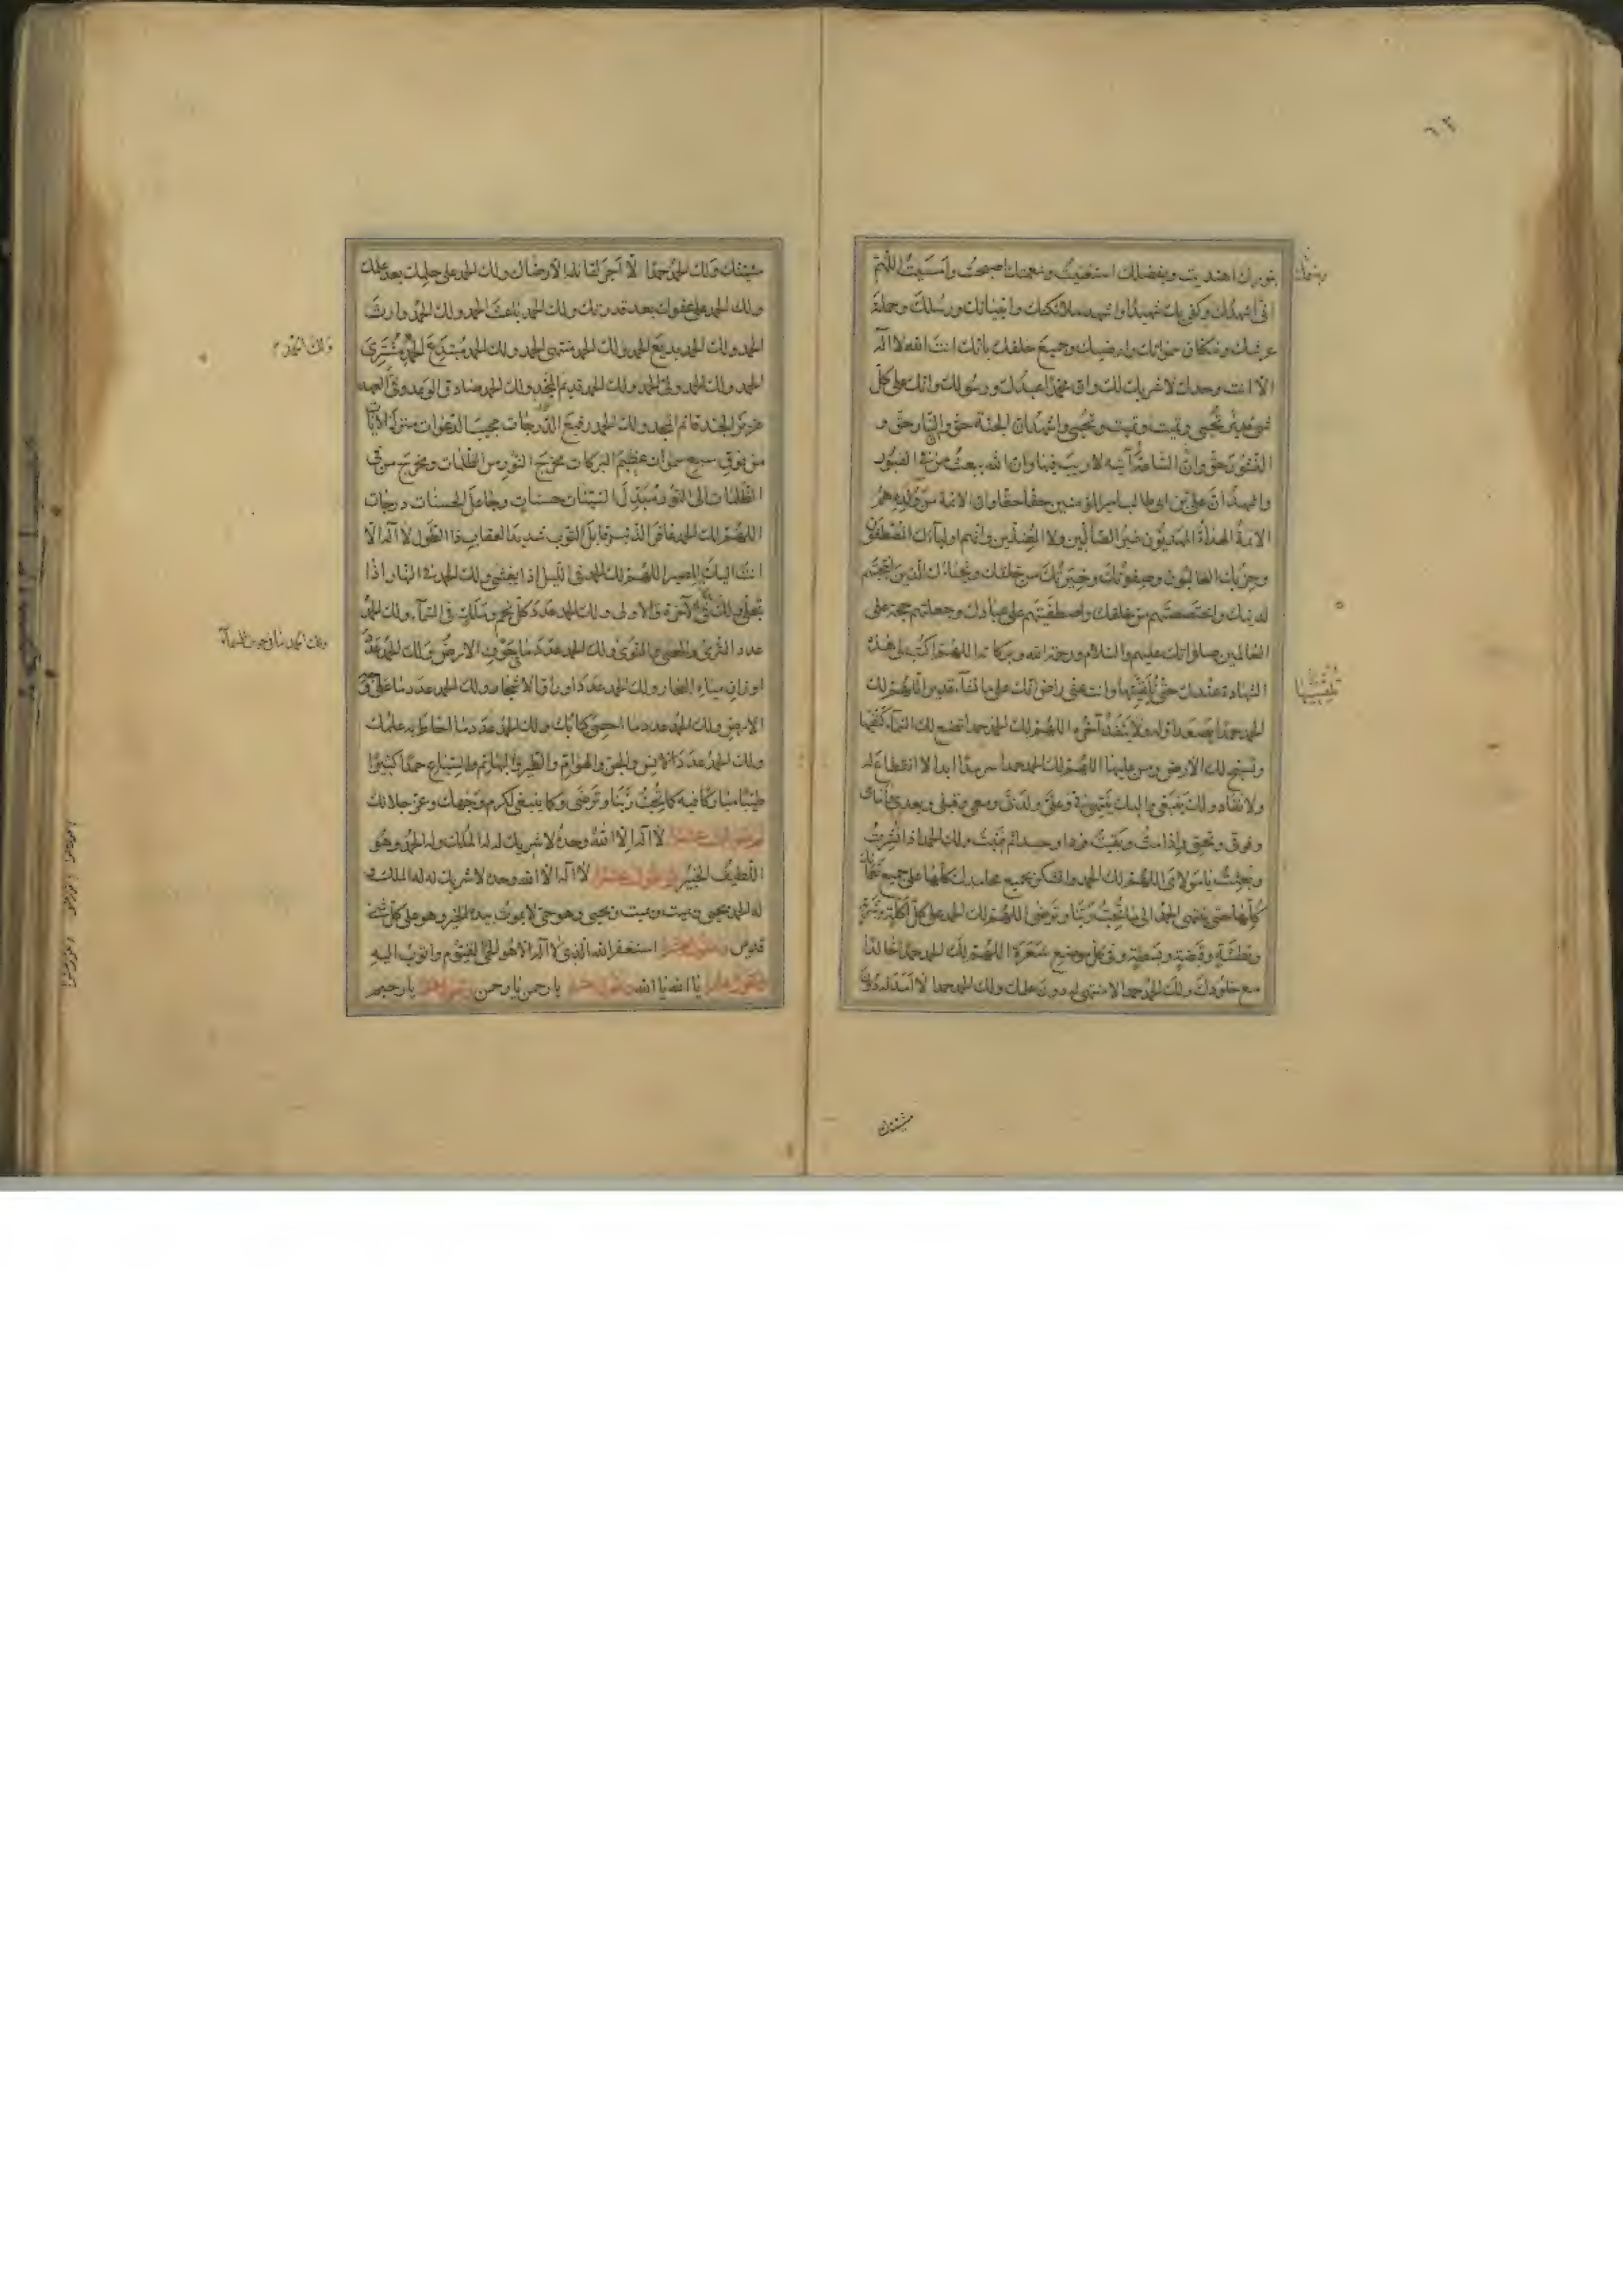 ٦٢
بنورك اهتديت وبفضلك استغنيت وبنعمتك اصبحت وامسيت اللهم
وبنعمتك
انى اشهدك وكفى بك شهيدا واشهد ملائكتك وانبيائك ورسلك وحملة
عرشك وسكان سمواتك وارضيك وجميع خلقك بانك انت الله لا اله
الا انت وحدك لا شريك لك وان محمدا عبدك ورسولك وانك على كل
شئ قدير تحيى وتميت وتميت وتحيى واشهد ان الجنة حق والنار حق و
النشور حق وان الساعة آتية لا ريب فيها وان الله يبعث من فى القبور
واشهد ان على بن ابى طالب امير المؤمنين حقا حقا وان الائمة من ولده هم
الائمة الهداة المهديون غير الضالين ولا المضلين وانهم اولياؤك المصطفون
وحزبك الغالبون وصفوتك وخيرتك من خلقك ونجباؤك الذين انتجبتهم
لدينك واختصصتهم من خلقك واصطفيتهم على عبادك وجعلتهم حجة على
العالمين صلواتك عليهم والسلام ورحمة الله وبركاته اللهم اكتب لى هذه
الشهادة عندك حتى تلقنيها وانت عنى راض انك على ما تشاء قدير اللهم لك
تلقنيها
الحمد حمدا يصعد اوله ولا ينفد آخره اللهم لك الحمد حمدا تضع لك السماء كنفيها
وتسبح لك الارض ومن عليها اللهم لك الحمد حمدا سرمدا ابدا لا انقطاع له
ولا نفاد ولك ينبغى واليك ينتهى فى وعلى ولدى ومعى وقبلى وبعدى وامامى
وفوقى وتحتى واذا مت وبقيت فردا وحيدا ثم فنيت ولك الحمد اذا نشرت
وبعثت يا مولاى اللهم لك الحمد والشكر بجميع محامدك كلها على جميع نعمائك
كلها حتى ينتهى الحمد الى ما تحب ربنا وترضى اللهم لك الحمد على كل اكلة وشربة
وبطشة وقبضة وبسطة وفى كل موضع شعرة اللهم لك الحمد حمدا خالدا
مع خلودك ولك الحمد حمدا لا منتهى له دون علمك ولك الحمد حمدا لا امد له دون
مشيتك
مشيتك ولك الحمد حمدا لا اجر لقائله الا رضاك ولك الحمد على حلمك بعد علمك
ولك الحمد على عفوك بعد قدرتك ولك الحمد باعث الحمد ولك الحمد وارث
الحمد ولك الحمد بديع الحمد ولك الحمد منتهى الحمد ولك الحمد مبتدع الحمد مشترى
ولك الحمد
الحمد ولك الحمد ولى الحمد ولك الحمد قديم الحمد ولك الحمد صادق الوعد وفى العهد
عزيز الجند قائم المجد ولك الحمد رفيع الدرجات مجيب الدعوات منزل الآيات
من فوق سبع سموات عظيم البركات مخرج النور من الظلمات ومخرج من فى
الظلمات الى النور مبدل السيئات حسنات وجاعل الحسنات درجات
اللهم لك الحمد غافر الذنب وقابل التوب شديد العقاب ذا الطول لا اله الا
انت اليك المصير اللهم لك الحمد فى الليل اذا يغشى ولك الحمد فى النهار اذا
تجلى ولك فى الآخرة والاولى ولك الحمد عدد كل نجم وملك فى السماء ولك الحمد
عدد الثرى والحصى والنوى ولك الحمد عدد ما فى جوف الارض ولك الحمد عدد
ولك الحمد ما فى جو السماء
اوزان مياه البحار ولك الحمد عدد اوراق الاشجار ولك الحمد عدد ما على وجه
الارض ولك الحمد عدد ما احصى كتابك ولك الحمد عدد ما احاط به علمك
ولك الحمد عدد الانس والجن والهوام والطير والبهائم والسباع حمدا كثيرا
طيبا مباركا فيه كما تحب ربنا وترضى وكما ينبغى لكرم وجهك وعز جلالك
لا اله الا الله وحده لا شريك له له الملك وله الحمد وهو
اللطيف الخبير وتقول عشرا لا اله الا الله وحده لا شريك له له الملك و
له الحمد يحيى ويميت ويميت ويحيى وهو حى لا يموت بيده الخير وهو على كل شئ
قدير وتقول عشرا استغفر الله الذى لا اله الا هو الحى القيوم واتوب اليه
وتقول عشرا يا الله يا الله وتقول عشرا يا رحمن يا رحمن يا رحيم